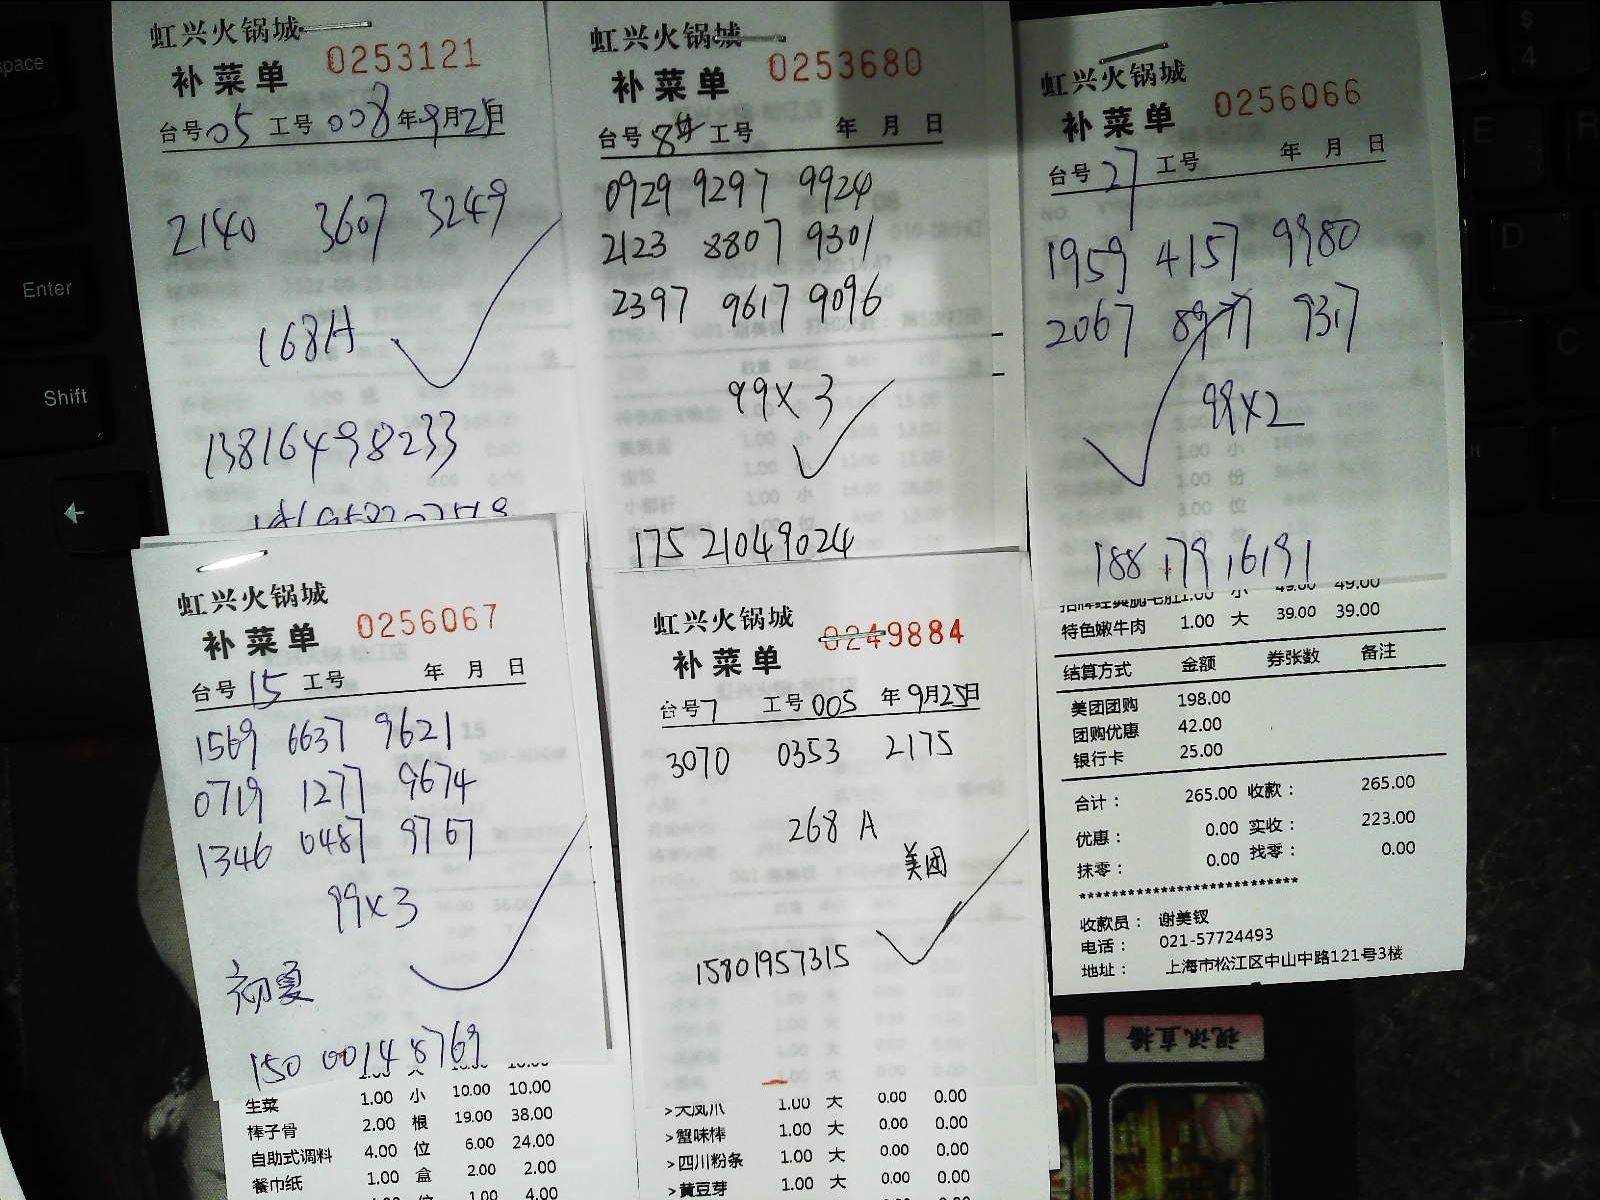 虹兴火锅城
补菜单 0253121
台号 05 工号 008 年 9月25日
2140 3607 3249
168A
13816498233
虹兴火锅城
补菜单 0253680
台号 工号 年 月 日
0929 9297 9924
2123 8807 9301
2397 9617 9096
99×3
17521049024
虹兴火锅城
补菜单 0256066
台号 27 工号 年 月 日
1959 4157 9980
2067 8977 9317
99×2
18817916191
1.00 小 49.00 49.00
特色嫩牛肉 1.00 大 39.00 39.00
结算方式 金额 券张数 备注
美团团购 198.00
团购优惠 42.00
银行卡 25.00
合计： 265.00 收款： 265.00
优惠： 0.00 实收： 223.00
抹零： 0.00 找零： 0.00
****************************
收款员： 谢美钗
电话： 021-57724493
地址： 上海市松江区中山中路121号3楼
虹兴火锅城
补菜单 0256067
台号 15 工号 年 月 日
1569 6637 9621
0719 1277 9674
1346 0487 9767
99×3
初夏
15000148769
生菜 1.00 小 10.00 10.00
棒子骨 2.00 根 19.00 38.00
自助式调料 4.00 位 6.00 24.00
餐巾纸 1.00 盒 2.00 2.00
位 1.00 4.00
虹兴火锅城
补菜单 0249884
台号 7 工号 005 年 9月25日
3070 0353 2175
268 A
美团
15801957315
>大凤爪 1.00 大 0.00 0.00
>蟹味棒 1.00 大 0.00 0.00
>四川粉条 1.00 大 0.00 0.00
>黄豆芽 1.00 大 0.00 0.00
space
Enter
Shift
$
4
E
R
D
C
视讯直播